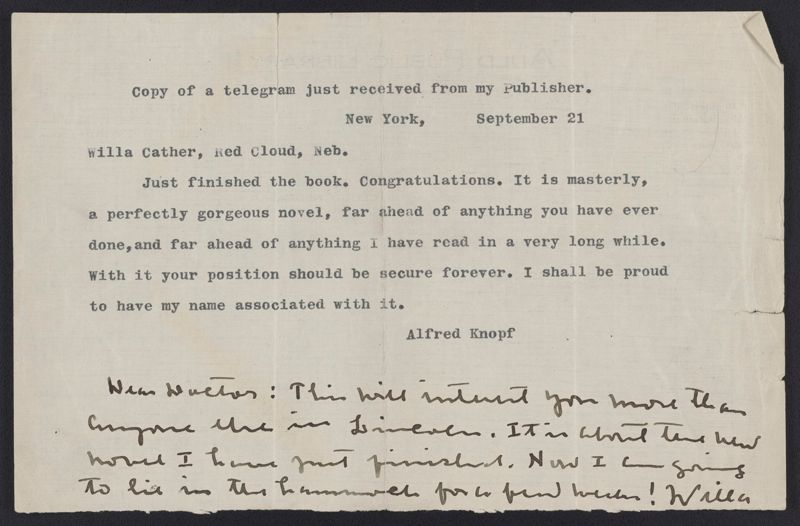 AULD PUBLIC LIBRARY
Copy of a telegram just received from my Publisher.
New York, September 21
Willa Cather, Red Cloud, Neb.
Just finished the book. Congratulations. It is masterly,
a perfectly gorgeous novel, far ahead of anything you have ever
done,and far ahead of anything I have read in a very long while.
With it your position should be secure forever. I shall be proud
to have my name associated with it.
Alfred Knopf
Dear Doctor: This will interest you more than
anyone else in Lincoln. It is about the new
novel I have just finished. Now I am going
to lie in the hammock for a few weeks! Willa